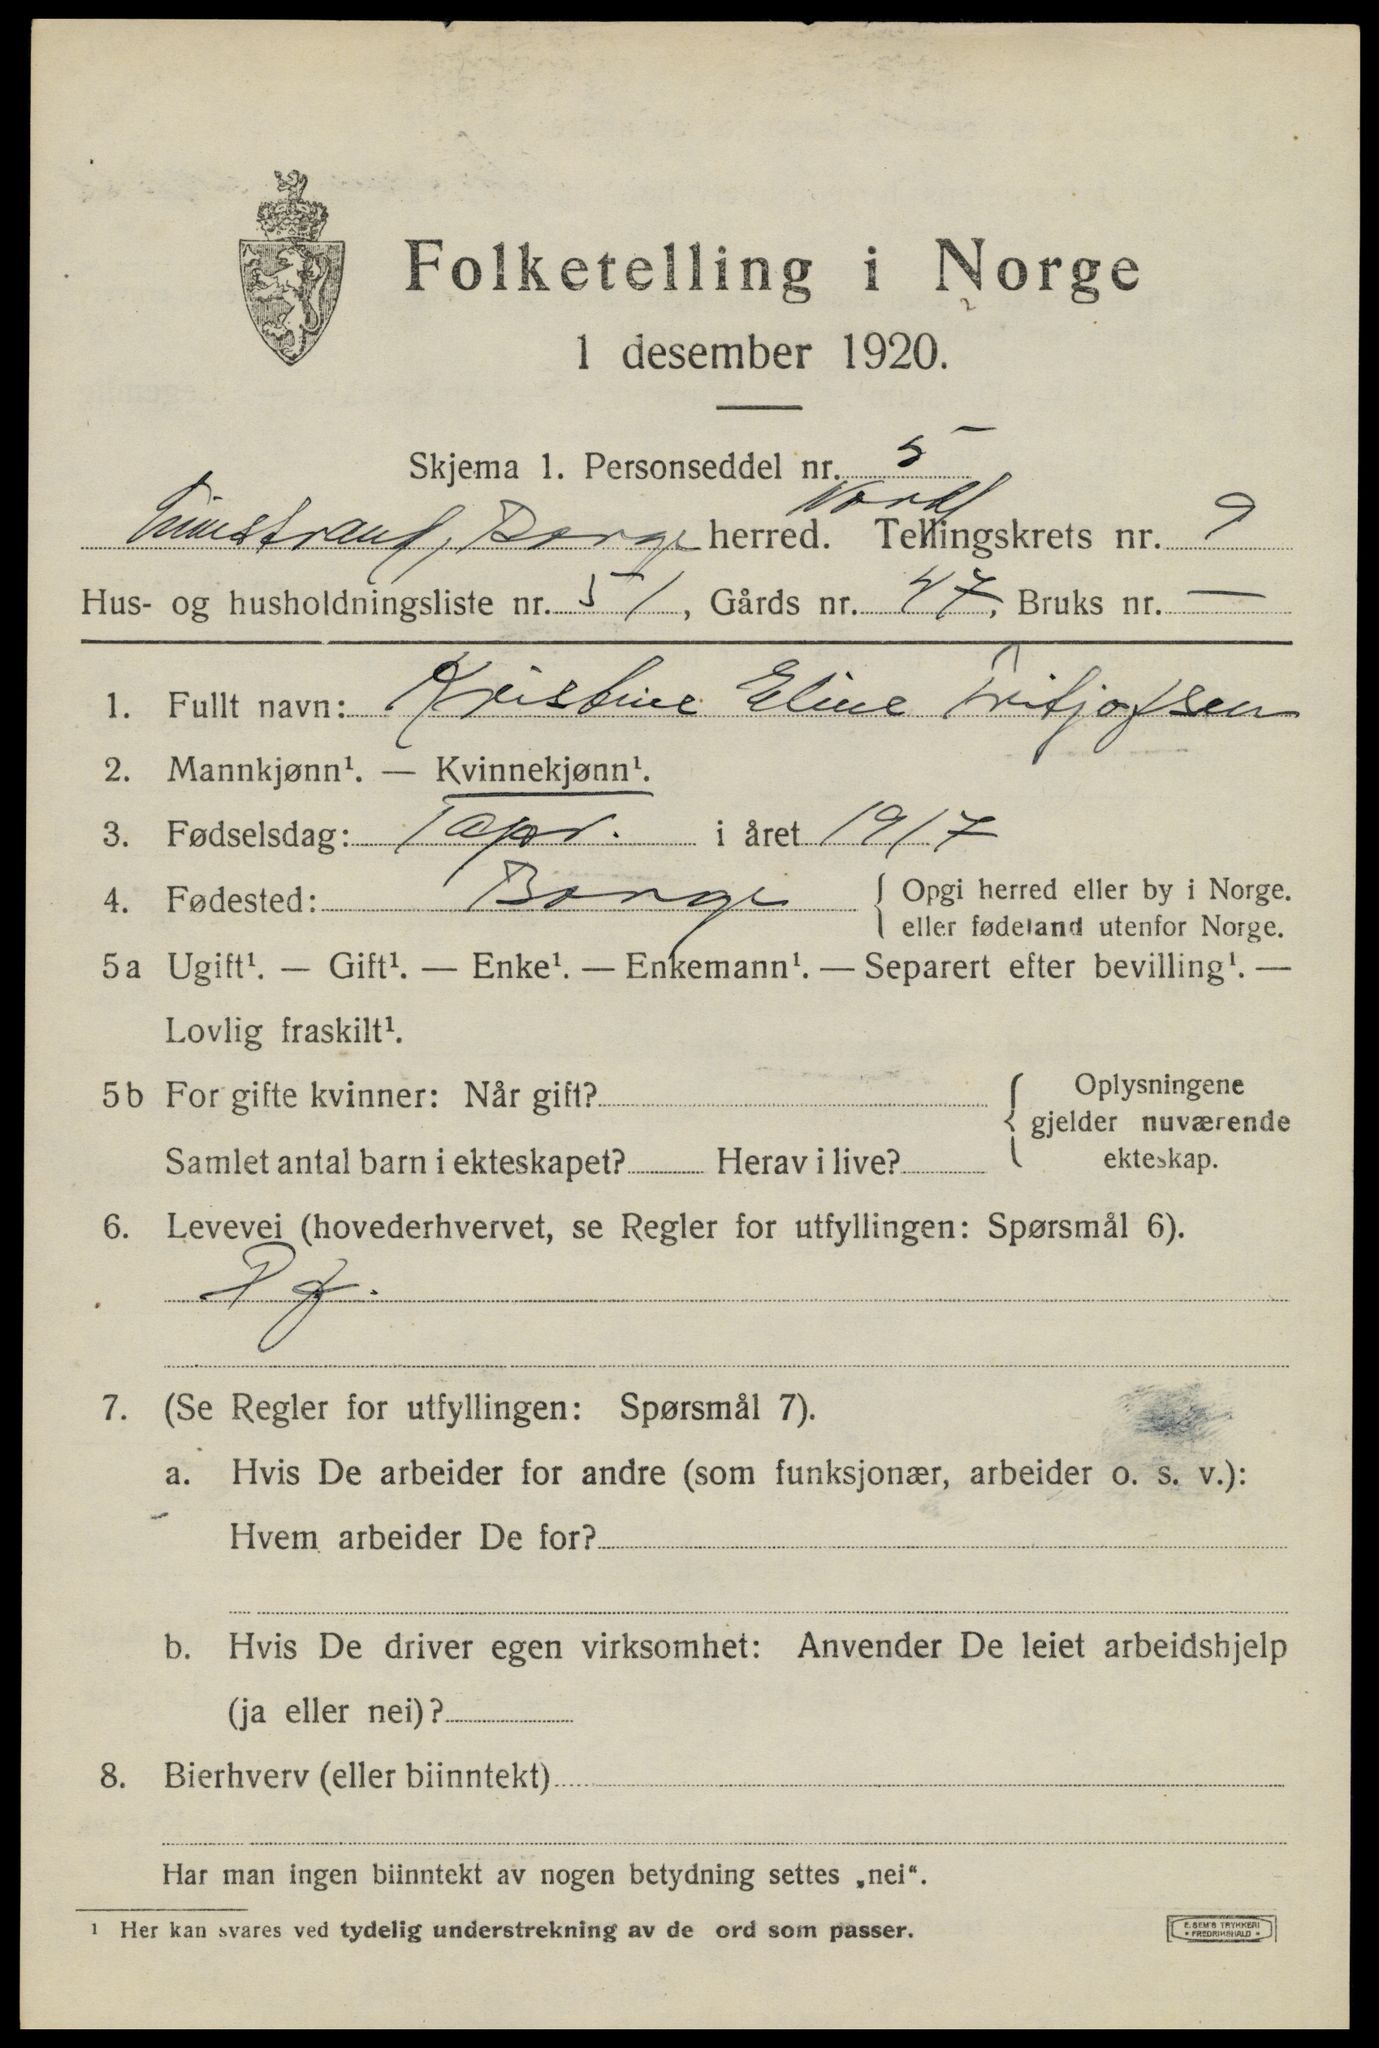 Folketelling i Norge
1 desember 1920.
Skjema 1. Personseddel nr. 5
Nordl
Borge herred. Tellingskrets nr. 9
Hus- og husholdningsliste nr. 51, Gårds nr. 47, Bruks nr. —
1. Fullt navn: Kristine Eline Fritjofsen
2. Mannkjønn¹. — Kvinnekjønn¹.
3. Fødselsdag: 1 apr. i året 1917
4. Fødested: Borge { Opgi herred eller by i Norge.
eller fødeland utenfor Norge.
5a Ugift¹. — Gift¹. — Enke¹. — Enkemann¹. — Separert efter bevilling¹. —
Lovlig fraskilt¹.
5b For gifte kvinner: Når gift? { Oplysningene
gjelder nuværende
Samlet antal barn i ekteskapet? Herav i live? ekteskap.
6. Levevei (hovederhvervet, se Regler for utfyllingen: Spørsmål 6).
7. (Se Regler for utfyllingen: Spørsmål 7).
a. Hvis De arbeider for andre (som funksjonær, arbeider o. s. v.):
Hvem arbeider De for?
b. Hvis De driver egen virksomhet: Anvender De leiet arbeidshjelp
(ja eller nei)?
8. Bierhverv (eller biinntekt)
Har man ingen biinntekt av nogen betydning settes „nei“.
¹ Her kan svares ved tydelig understrekning av de ord som passer.
E. SEM'S TRYKKERI
• FREDRIKSHALD •